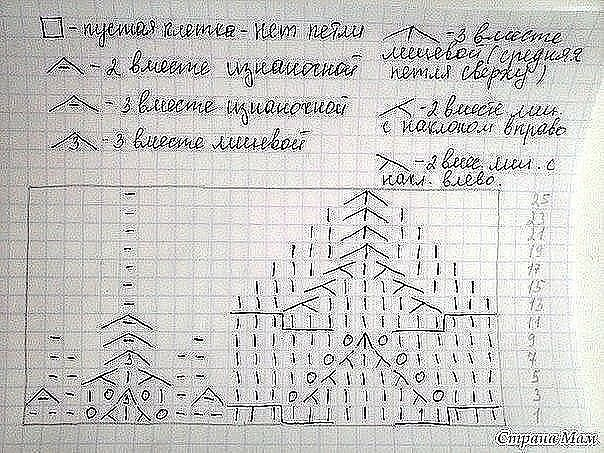 - пустая клетка - нет петли
- 2 вместе изнаночной
- 3 вместе изнаночной
3 - 3 вместе лицевой
- 3 вместе
лицевой (средняя
петля сверху)
- 2 вместе лиц.
с наклоном вправо
- 2 вмес. лиц. с
накл. влево.
25
23
21
19
17
15
13
11
9
7
5
3
1
Страна Мам